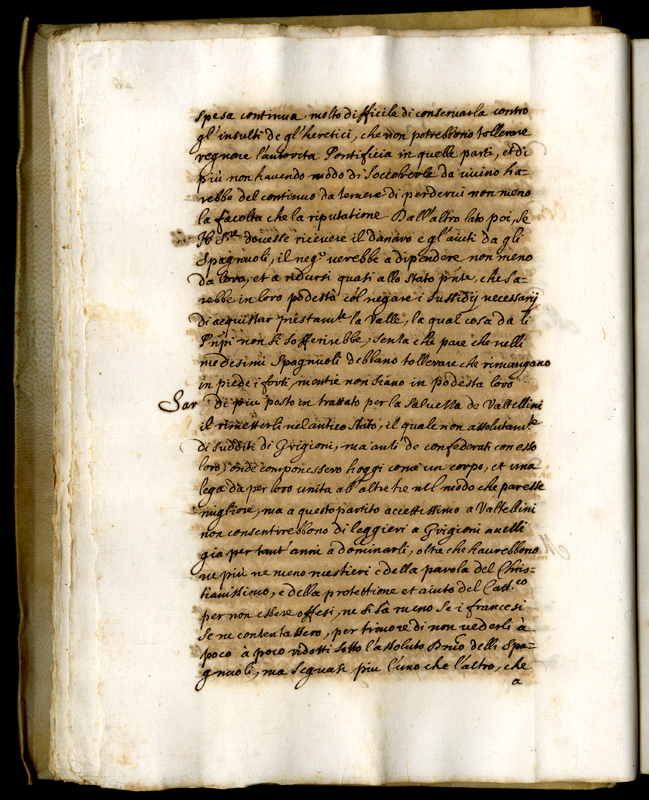 spesa continua, molto difficile di conservarla contro
gl'insulti de gl'heretici, che non potrebbono tollerare
regnare l'autorita Pontificia in quelle parti, et di
più non havendo modo di soccoberle da vicino ha=
rebbe del continuo da temere di perdervi non meno
la facolta che la riputatione. Dall'altro lato poi, se
N. Sre. dovesse ricevere il danaro e gl'aiuti da gli
Spagnuoli, il neg.o verebbe a dipendere non meno
da loro, et a ridursi quasi allo stato pnte, che sa=
rebbe in loro podestà col negare i sussidij necessarij
di acquistar la Valle, la qual cosa da li
Pnpi non si sofferirebbe, senza che pare che nelli
medesimi Spagnuoli debbano tollerare che rimangano
in piede i forti, mentre non siano in podesta loro
Sar Di più posto in trattato per la salvezza de Valtellini
il rimetterli nel antico stato, il quale non assolutamte.
di sudditi di Grigioni, ma anti de confederati con esso
loro, onde componessero hoggi come un corpo, et una
lega da per loro unita all'altre tre nel modo che paresse
migliore, ma a questo partito accettissimo a Valtellini
non consentirebbono di leggieri a Grigioni avelli
gia per tant'anni a dominarli, oltre che haurebbono
ne più ne meno mestieri e della parola del Chris=
tianissimo, e della protettione et aiuto del Catt.co
per non essere offesi, ne si sà meno se i francesi
se ne contentassero, per timore di non vederli à
poco à poco ridotti sotto l'assoluto Dnio delli Spa=
gnuoli, ma seguase più l'uno che l'altro, che
a